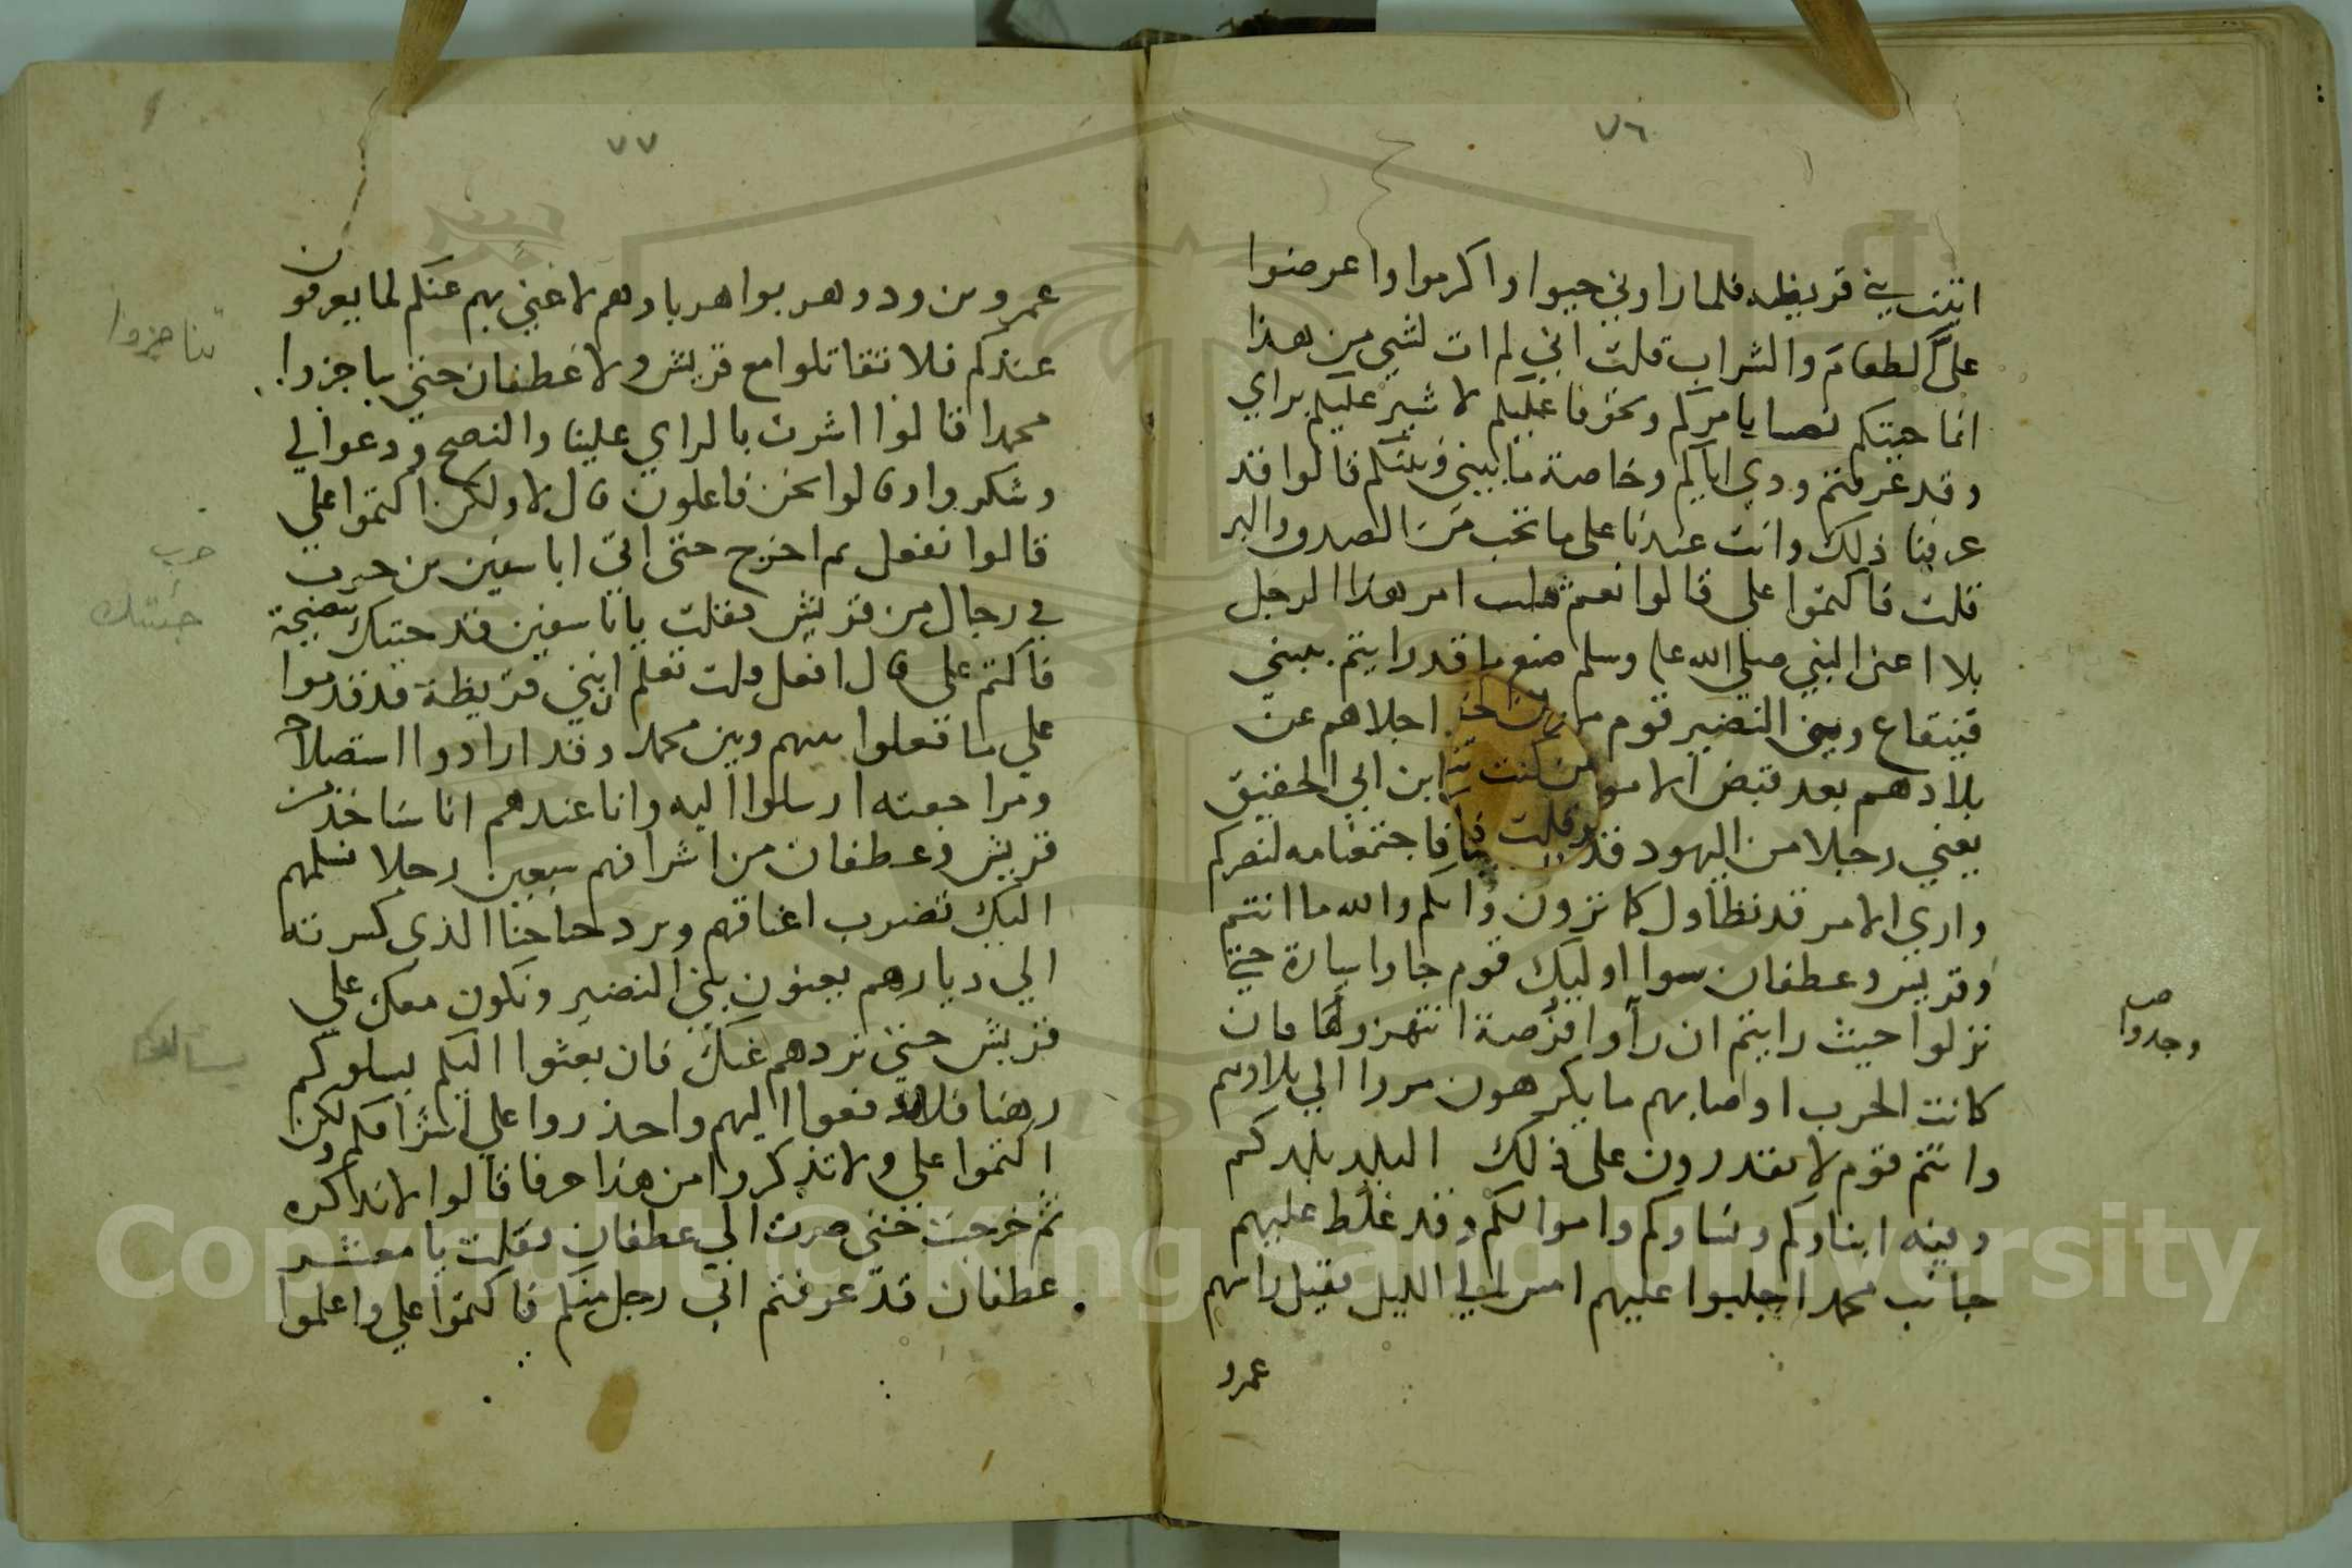 ٧٦
اتيت بني قريظه فلما راوني حيوا واكرموا واعرضوا
على الطعام والشراب فقلت اني لم ات لشي من هذا
انما جيتكم نصبا بامركم وتخوفا عليكم لاشير عليكم براي
وقد عرفتم ودي اياكم وخاصة ما بيني وبينكم قالوا قد
عرفنا ذلك وانت عندنا على ما تحب من الصدق والبر
قلت فاكتموا علي قالوا نعم قلت امر هذا الرجل
بلا اعني النبي صلى الله عليه وسلم صنع ما قد رايتم ببني
قينقاع وبني النضير قوم اجلاهم عن
بلادهم بعد قبض الاموال ابن ابي الحقيق
يعني رجلا من اليهود قد فاجتمعنا معه لنصركم
واري الامر قد تطاول كما ترون وانكم والله ما انتم
وقريش وعطفان سوا اوليك قوم جاوا سيارة حتى
نزلوا حيث رايتم ان رأوا فرصة انتهزوها وان
كانت الحرب او اصابهم ما يكرهون مروا الي بلادهم
وانتم قوم لا تقدرون على ذلك البلد بلدكم
وفيه ابناوكم ونساوكم واموالكم وقد غلط عليهم
جانب محمد اجلبوا عليهم امس الي الليل فقتل راسهم
عمرو
وجدوا
٧٧
عمرو بن ود وهربوا هربا وهم لا غني بهم عنكم لما يعرفون
عندكم فلا تقاتلوا مع قريش ولا غطفان حتى ياجزوا
محمدا قالوا اشرت بالراي علينا والنصح ودعوا لي
وشكروا وقالوا نحن فاعلون قال لا ولكن اكتموا علي
قالوا نفعل ثم اخرج حتى اتى ابا سفين بن حرب
في رجال من قريش فقلت يابا سفين قد جيتك بنصيحة
فاكتم علي قال افعل قلت تعلم ان بني قريظة قد قدموا
على ما فعلوا بينهم وبين محمد وقد ارادوا استصلاحه
ومراجعته ارسلوا اليه وانا عندهم انا سناخذ من
قريش وغطفان من اشرافهم سبعين رجلا نسلمهم
اليك تضرب اعناقهم وترد جناحنا الذي كسرته
الي ديارهم يعنون بني النضير ونكون معك على
قريش حتى نردهم عنك فان بعثوا اليكم يسلوكم
رهنا فلا تدفعوا اليهم واحذروا علي اشرافكم ولكن
اكتموا علي ولا تذكروا من هذا حرفا قالوا لا نذكره
ثم خرجت حتى صرت الي عطفان فقلت يا معشر
عطفان قد عرفتم اني رجل منكم فاكتموا علي واعلموا
تناجزوا
حرب
جئتك